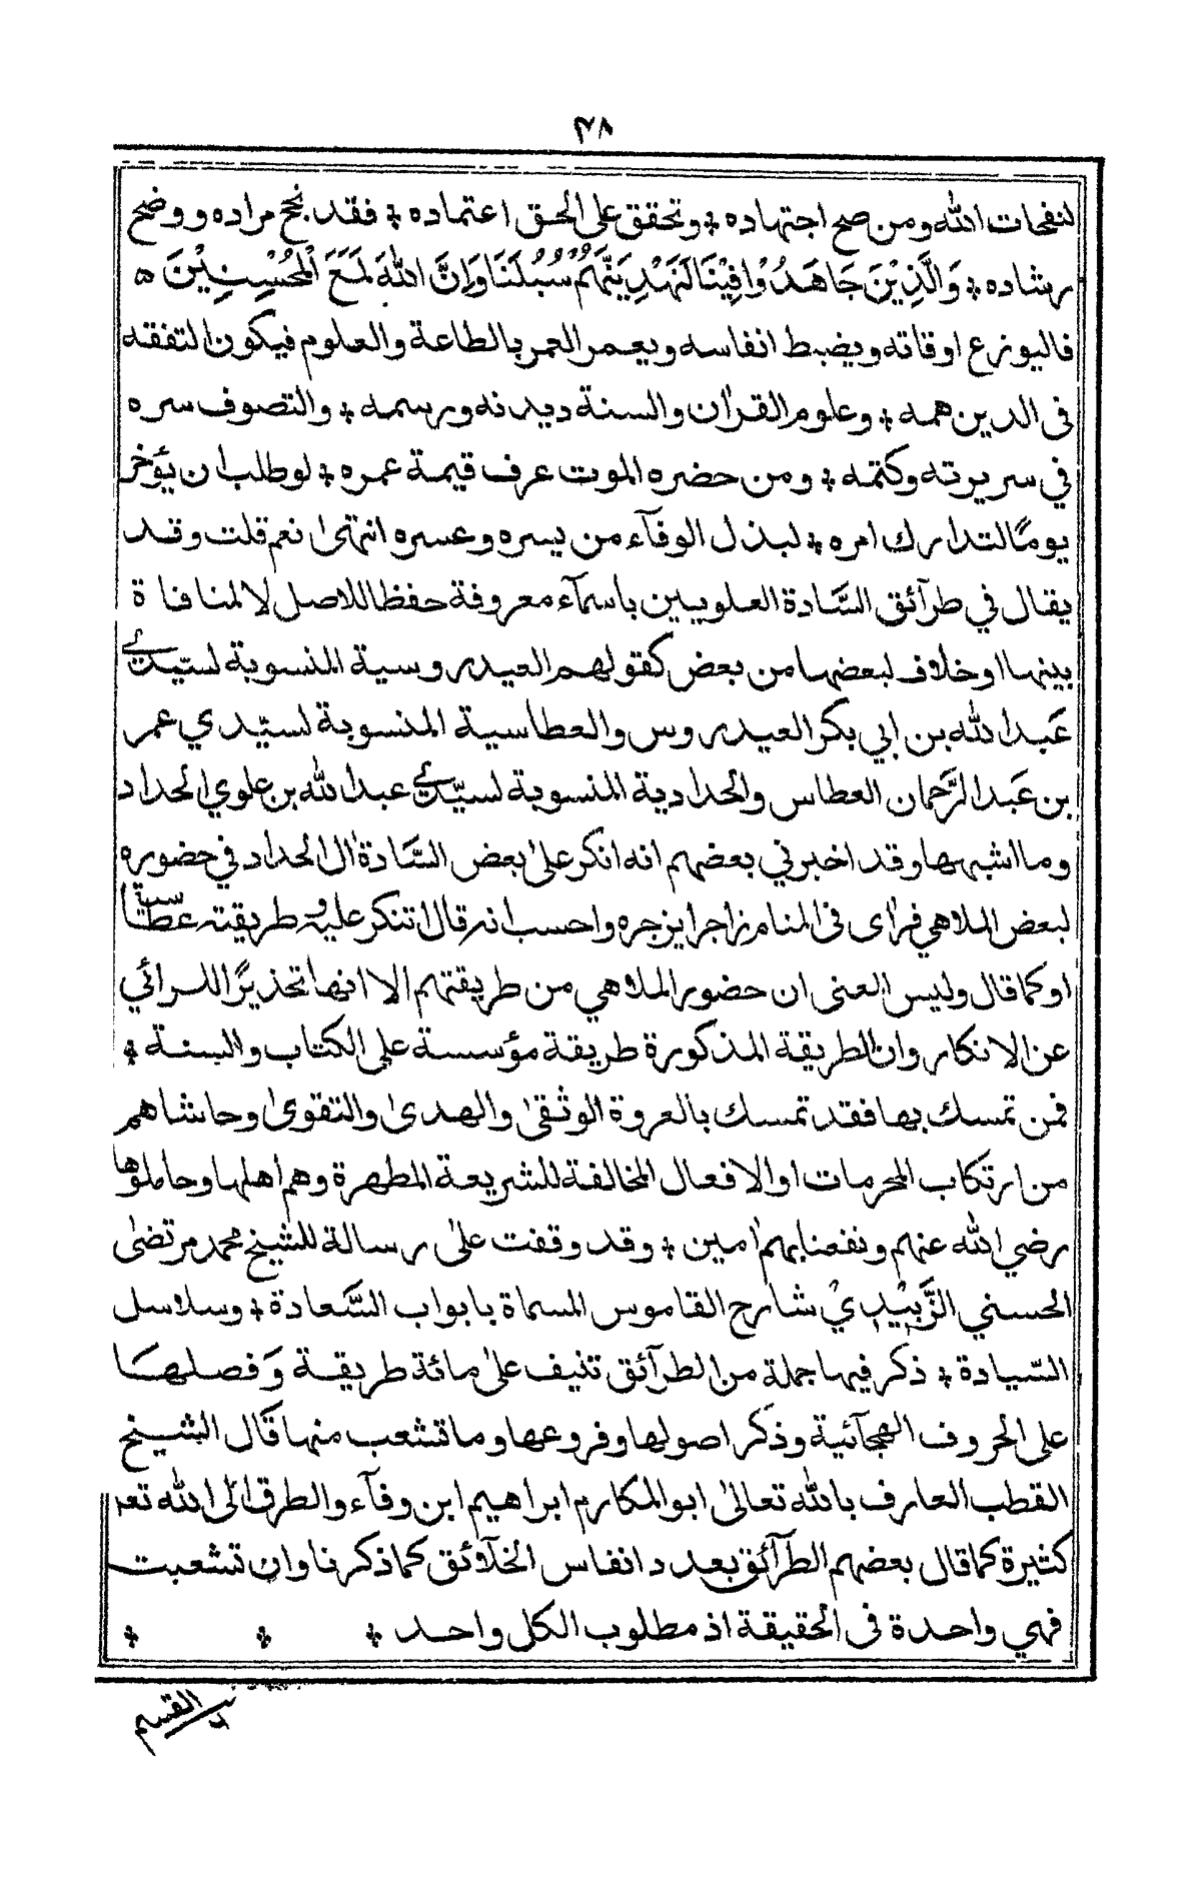 ٣٨
لنفحات الله ومن صح اجتهاده * وتحقق على الحق اعتماده * فقد نجح مراده ووضح
رشاده * وَالَّذِيْنَ جَاهَدُوْا فِيْنَا لَنَهْدِيَنَّهُمْ سُبُلَنَا وَاِنَّ اللهَ لَمَعَ الْمُحْسِنِيْنَ ه
فاليوزع اوقاته ويضبط انفاسه ويعمر العمر بالطاعة والعلوم فيكون التفقه
فى الدين همه * وعلوم القرأن والسنة ديدنه ورسمه * والتصوف سره
في سريرته وكتمه * ومن حضره الموت عرف قيمة عمره * لو طلب ان يؤخر
يومًا لتدارك امره * لبذل الوفآء من يسره وعسره انتهىٰ نعم قلت وقد
يقال في طرآئق السَّادة العلويين باسمآء معروفة حفظا للاصل لا لمنافاة
بينها او خلاف لبعضها من بعض كقولهم العيدروسية المنسوبة لسيّدي
عَبد الله بن ابي بكر العيدروس والعطاسية المنسوبة لسيّدي عمر
بن عَبد الرَّحمان العطاس والحدادية المنسوبة لسيّدي عبد الله بن علوي الحداد
وما اشبهها وقد اخبرني بعضهم انه انكر علىٰ بعض السَّادة اٰل الحداد في حضوره
لبعض الملاهي فرأى فى المنام زاجرا يزجره واحسب انه قال اتنكر عليه وطريقته عطّاسية
او كما قال وليس العنى ان حضور الملاهي من طريقتهم الا انها تحذيرًا للرائي
عن الانكار وان الطريقة المذكورة طريقة مؤسسة على الكتاب والسنة *
فمن تمسك بها فقد تمسك بالعروة الوثقىٰ والهدىٰ والتقوىٰ وحاشاهم
من ارتكاب المحرمات او الافعال المخالفة للشريعة المطهرة وهم اهلها وحاملوها
رضي الله عنهم ونفعنا بهم اٰمين * وقد وقفت علىٰ رسالة للشيخ محمد مرتضىٰ
الحسني الزَّبِيْدِيْ شارح القاموس المسماة بابواب السَّعادة * وسلاسل
السّيادة * ذكر فيها جملة من الطرآئق تنيف علىٰ مائة طريقة وَفصلهَا
على الحروف الهجآئية وذكر اصولها وفروعها وما تشعب منها قَال الشيخ
القطب العارف بالله تعالىٰ ابو المكارم ابراهيم ابن وفآء والطرق الى الله تعم
كثيرة كما قال بعضهم الطرآئق بعدد انفاس الخلآئق كما ذكرنا وان تشعبت
فهي واحدة فى الحقيقة اذ مطلوب الكل واحد * * *
القسم